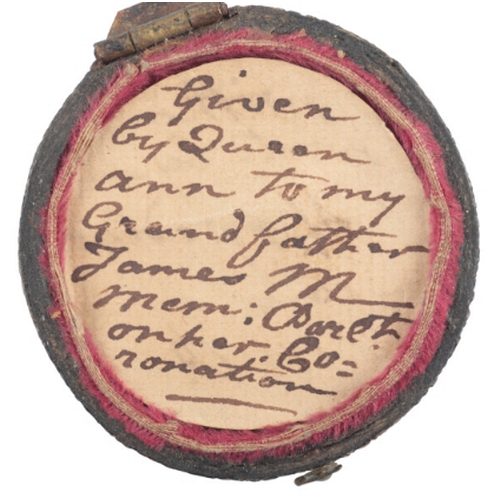 Given
by Queen
ann to my
Grand father
James M
mem:
on her Co=
ronation